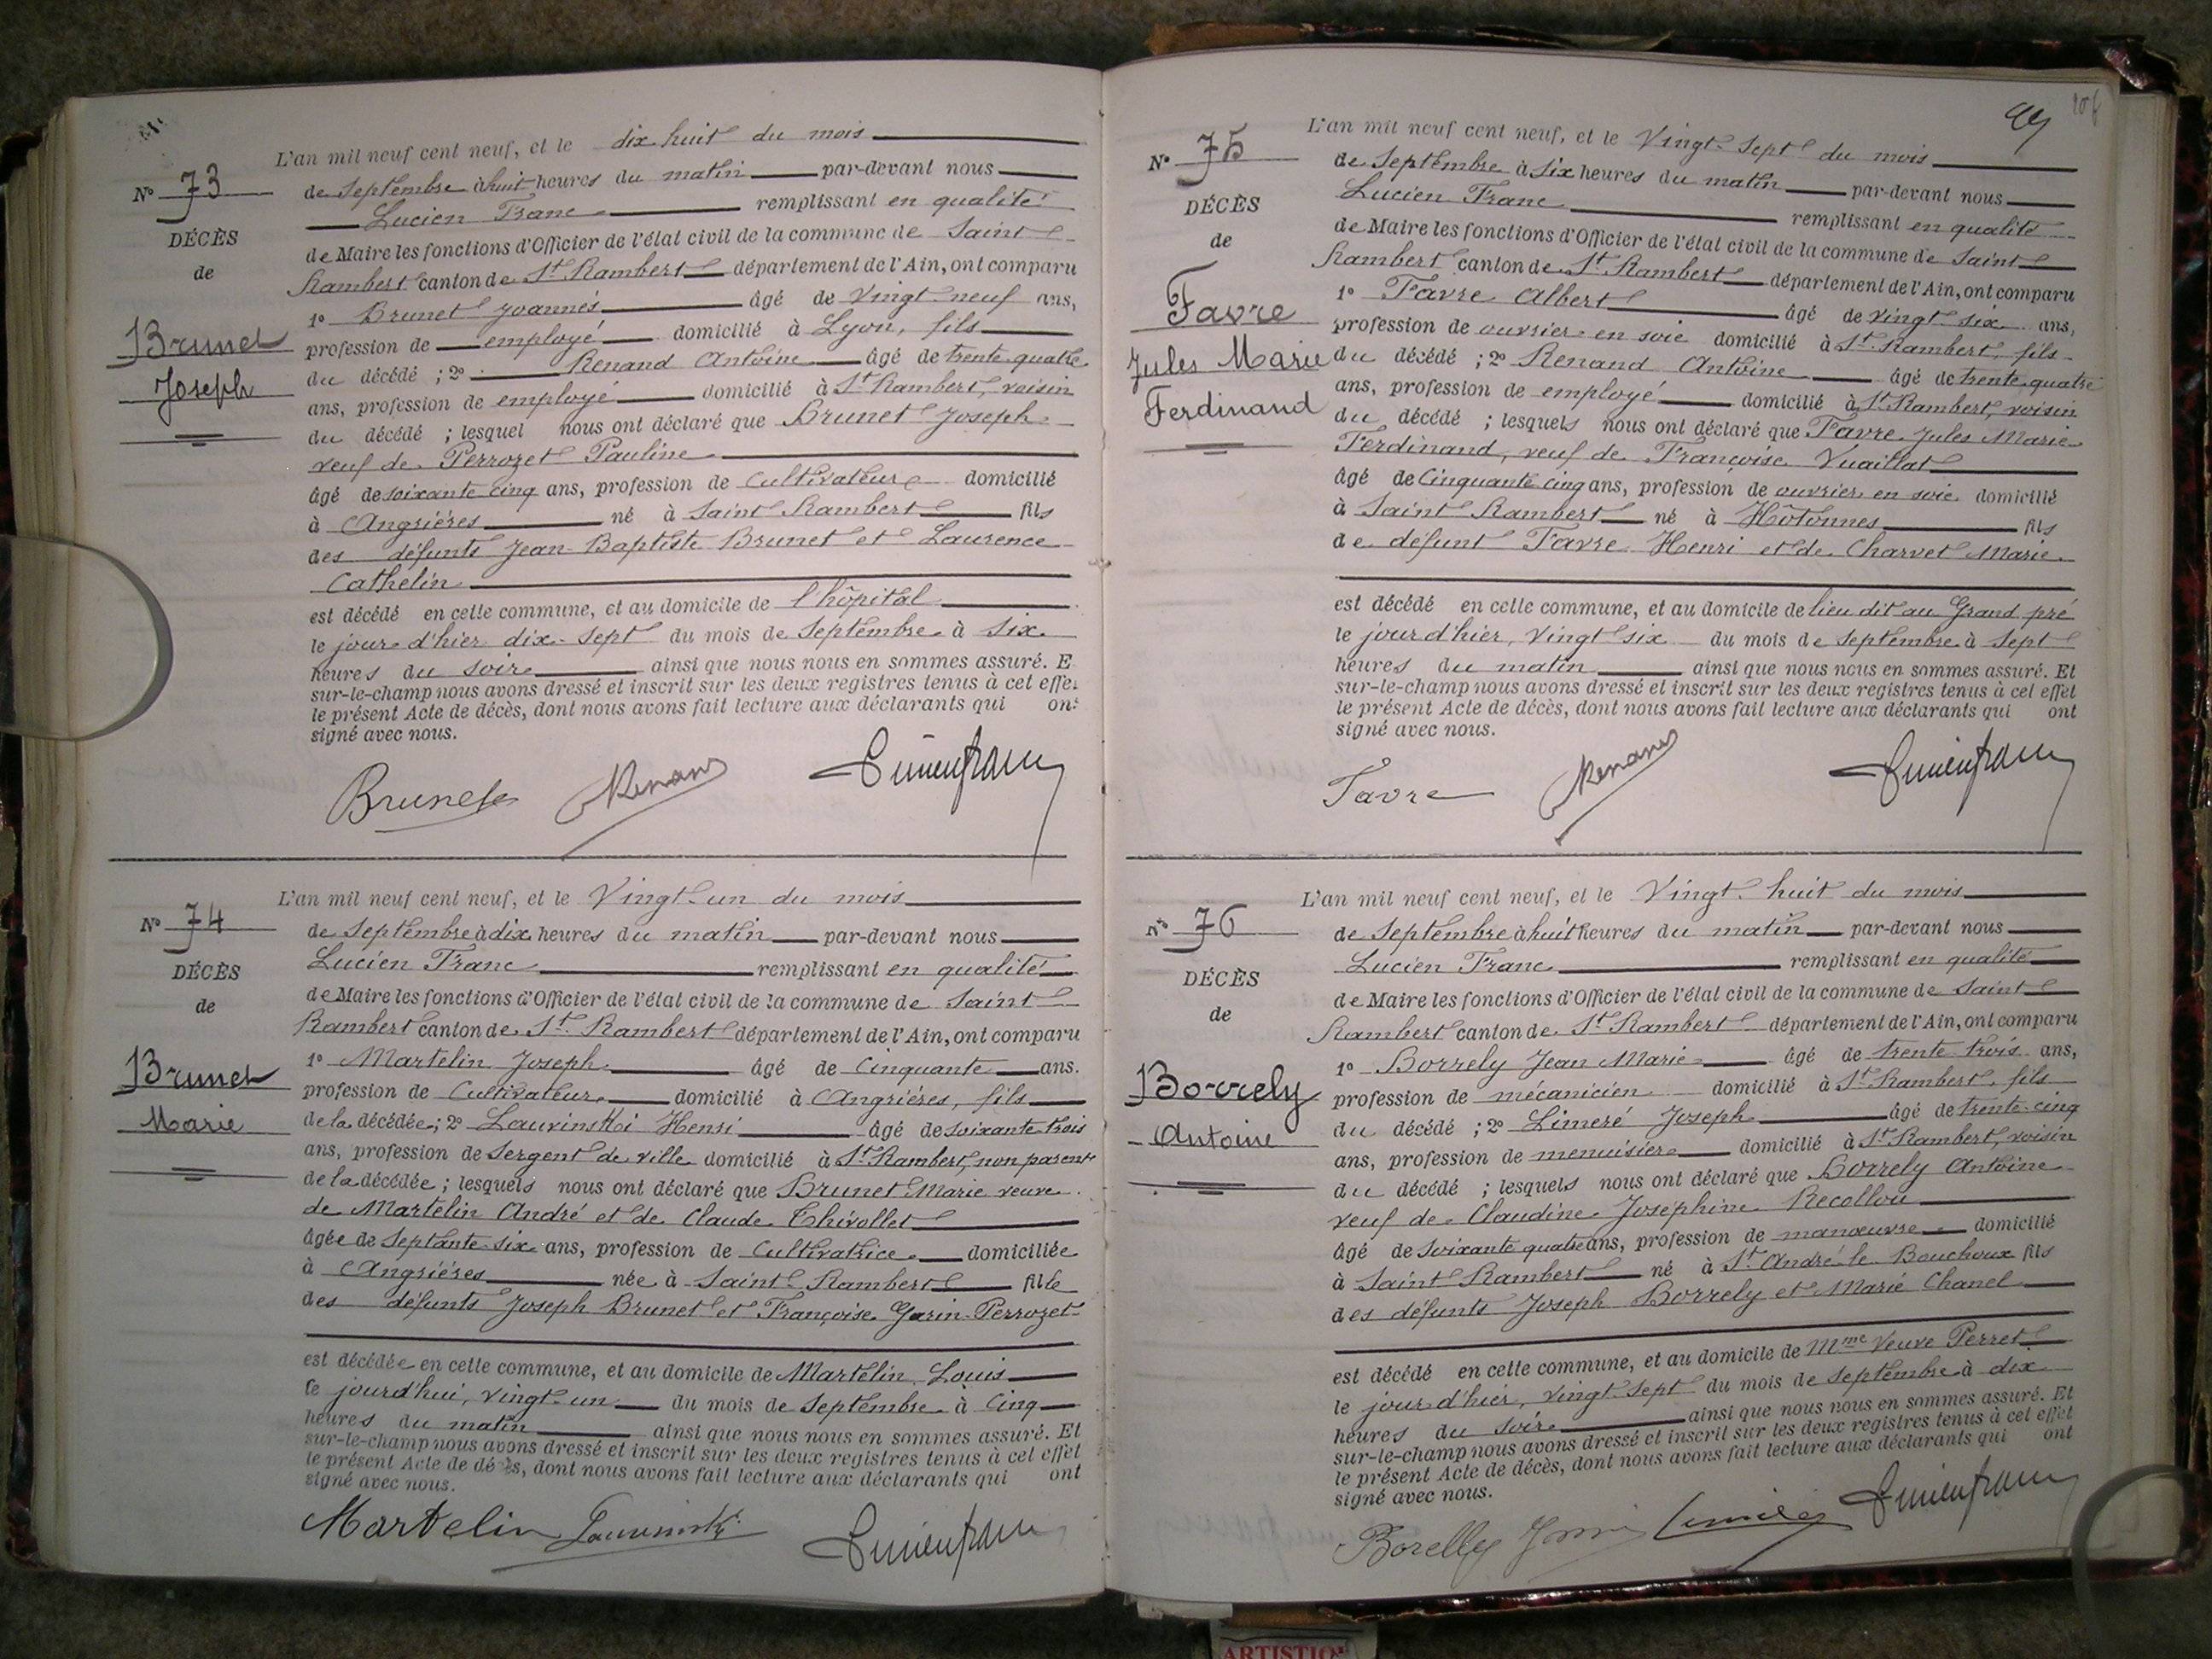 N° 73
DÉCÈS
de
Brunet
Joseph
L'an mil neuf cent neuf, et le dix huit du mois
de Septembre à huit heures du matin par-devant nous
Lucien Franc remplissant en qualité
de Maire les fonctions d'Officier de l'état civil de la commune de Saint
Rambert canton de St Rambert département de l'Ain, ont comparu
1° Brunet Joannès âgé de vingt neuf ans,
profession de employé domicilié à Lyon, fils
du décédé ; 2° Renand Antoine âgé de trente quatre
ans, profession de employé domicilié à St Rambert, voisin
du décédé ; lesquel nous ont déclaré que Brunet Joseph
veuf de Perrozet Pauline
âgé de soixante cinq ans, profession de Cultivateur domicilié
à Angrières né à Saint Rambert fils
des défunts Jean-Baptiste Brunet et Laurence
Cathelin
est décédé en cette commune, et au domicile de l'hôpital
le jour d'hier dix-sept du mois de Septembre à six
heures du soir ainsi que nous nous en sommes assuré. E
sur-le-champ nous avons dressé et inscrit sur les deux registres tenus à cet effe
le présent Acte de décès, dont nous avons fait lecture aux déclarants qui ont
signé avec nous.
Brunet Renand Lucien Franc
N° 74
DÉCÈS
de
Brunet
Marie
L'an mil neuf cent neuf, et le Vingt-un du mois
de Septembre à dix heures du matin par-devant nous
Lucien Franc remplissant en qualité
de Maire les fonctions d'Officier de l'état civil de la commune de Saint
Rambert canton de St Rambert département de l'Ain, ont comparu
1° Martelin Joseph âgé de Cinquante ans.
profession de Cultivateur domicilié à Angrières, fils
de la décédée ; 2° Laurinski Henri âgé de soixante trois
ans, profession de Sergent de ville domicilié à St Rambert, non parent
de la décédée ; lesquels nous ont déclaré que Brunet Marie veuve
de Martelin André et de Claude Chivollet
âgée de Septante-six ans, profession de Cultivatrice domiciliée
à Angrières née à Saint Rambert fille
des défunts Joseph Brunet et Françoise Garin-Perrozet
est décédée en cette commune, et au domicile de Martelin Louis
le jourd'hui, vingt-un du mois de Septembre à Cinq
heures du matin ainsi que nous nous en sommes assuré. Et
sur-le-champ nous avons dressé et inscrit sur les deux registres tenus à cet effet
le présent Acte de décès, dont nous avons fait lecture aux déclarants qui ont
signé avec nous.
Martelin Laurinski Lucien Franc
99
N° 75
DÉCÈS
de
Favre
Jules Marie
Ferdinand
L'an mil neuf cent neuf, et le Vingt-Sept du mois
de Septembre à Six heures du matin par-devant nous
Lucien Franc remplissant en qualité
de Maire les fonctions d'Officier de l'état civil de la commune de Saint
Rambert canton de St Rambert département de l'Ain, ont comparu
1° Favre Albert âgé de vingt six ans,
profession de ouvrier en soie domicilié à St Rambert, fils
du décédé ; 2° Renand Antoine âgé de trente quatre
ans, profession de employé domicilié à St Rambert, voisin
du décédé ; lesquels nous ont déclaré que Favre Jules Marie
Ferdinand, veuf de Françoise Vuaillat
âgé de Cinquante cinq ans, profession de ouvrier en soie domicilié
à Saint Rambert né à Hôtonnes fils
de défunt Favre Henri et de Charvet Marie
est décédé en cette commune, et au domicile de lieu dit au Grand pré
le jour d'hier, Vingt six du mois de Septembre à Sept
heures du matin ainsi que nous nous en sommes assuré. Et
sur-le-champ nous avons dressé et inscrit sur les deux registres tenus à cet effet
le présent Acte de décès, dont nous avons fait lecture aux déclarants qui ont
signé avec nous.
Favre Renand Lucien Franc
N° 76
DÉCÈS
de
Borrely
Antoine
L'an mil neuf cent neuf, et le Vingt-huit du mois
de Septembre à huit heures du matin par-devant nous
Lucien Franc remplissant en qualité
de Maire les fonctions d'Officier de l'état civil de la commune de Saint
Rambert canton de St Rambert département de l'Ain, ont comparu
1° Borrely Jean Marie âgé de trente trois ans,
profession de mécanicien domicilié à St Rambert, fils
du décédé ; 2° Limeré Joseph âgé de trente-cinq
ans, profession de menuisier domicilié à St Rambert, voisin
du décédé ; lesquels nous ont déclaré que Borrely Antoine
veuf de Claudine Joséphine Recollou
âgé de Soixante quatre ans, profession de manœuvre domicilié
à Saint Rambert né à St André le Bouchoux fils
des défunts Joseph Borrely et Marie Chanel
est décédé en cette commune, et au domicile de Mme Veuve Perret
le jour d'hier, vingt-sept du mois de Septembre à dix
heures du soir ainsi que nous nous en sommes assuré. Et
sur-le-champ nous avons dressé et inscrit sur les deux registres tenus à cet effet
le présent Acte de décès, dont nous avons fait lecture aux déclarants qui ont
signé avec nous.
Borelly Limeré Lucien Franc